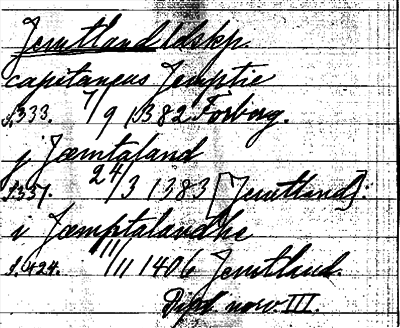 Jemtland ldskp.
capitaneus Jemptie
s.333. 7/9 1382 Forborg.
j Jæmtaland
s.337. 24/3 1383 [Jemtland]:
i Jæmptalandhe
s.424. 11/11 1406 Jemtland.
Dipl. norv. III.